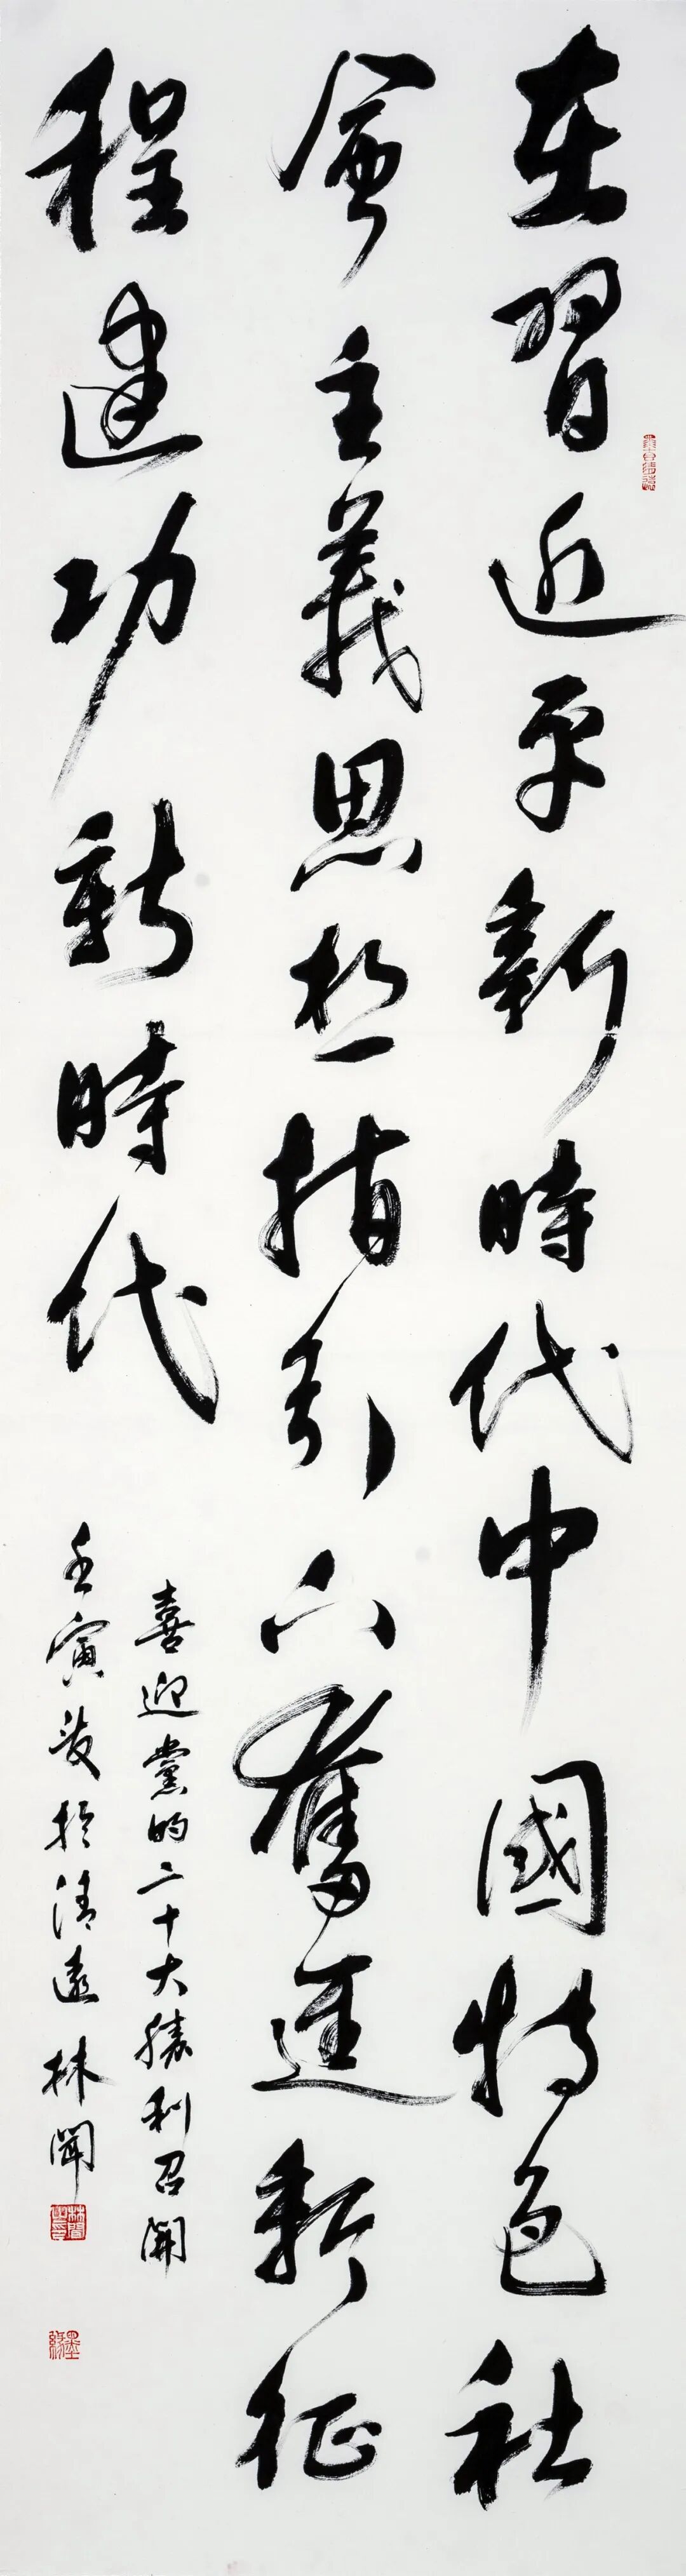 在習近平新時代中國特色社
會主義思想指引下奮進新征
程建功新時代
喜迎黨的二十大勝利召開
壬寅夏於清遠 林聞